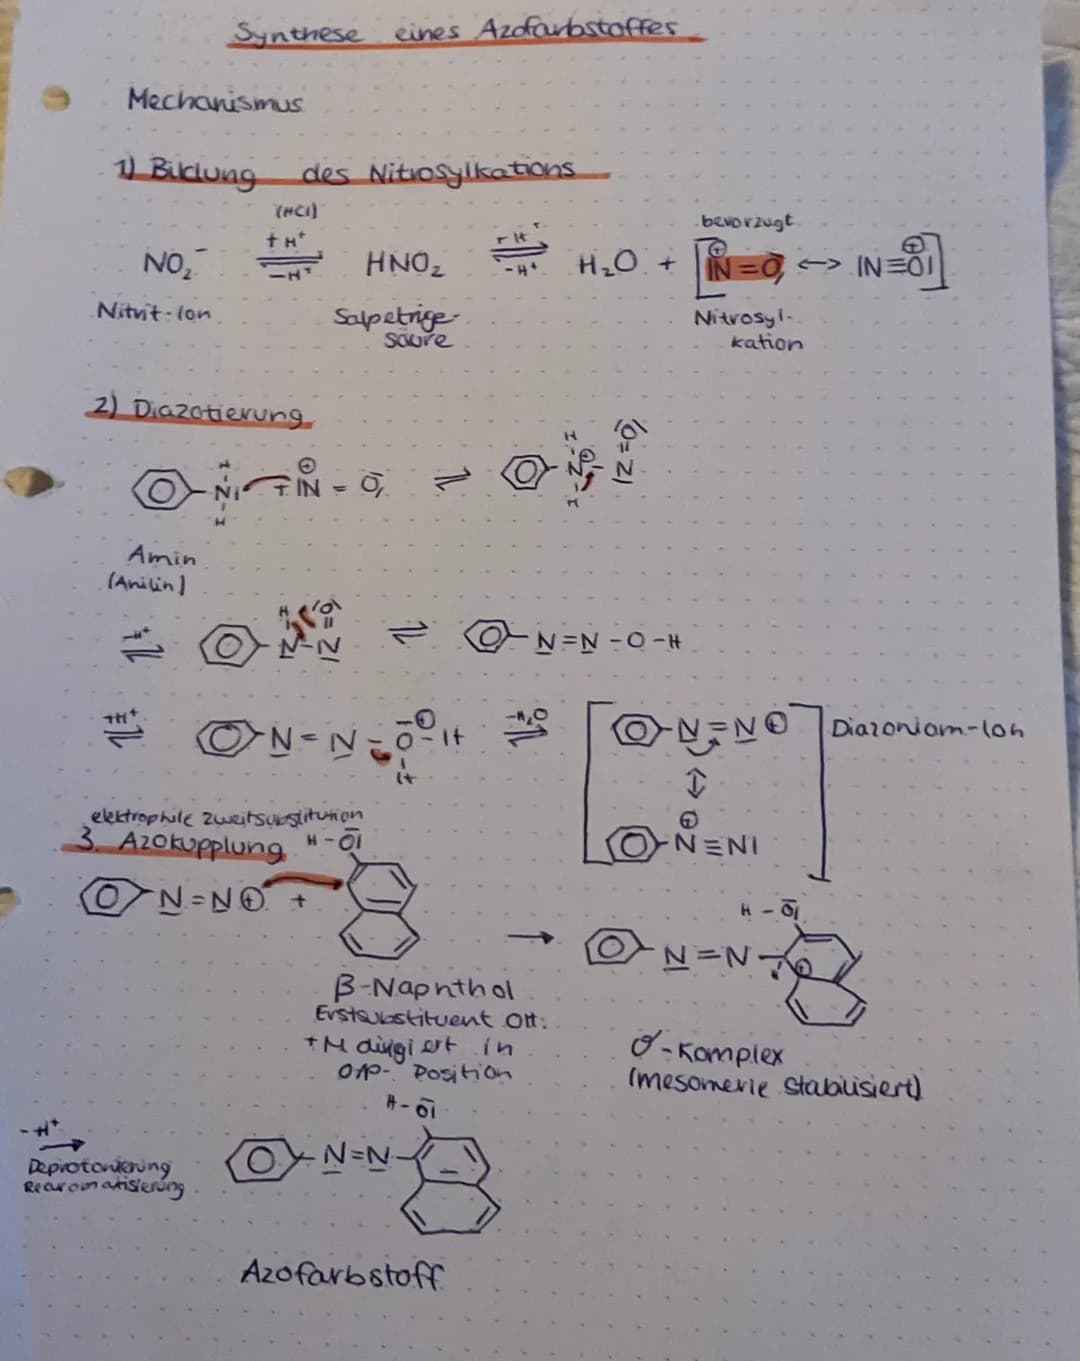 Synthese eines Azofarbstoffes
Mechanismus
1) Bildung des Nitrosylkations
(HCl)
bevorzugt
NO₂⁻ +H⁺ ⇌ -H⁺ HNO₂ +H⁺ ⇌ -H⁺ H₂O + [|N⊕=O ↔ |N≡O⊕|]
Nitrit-Ion Salpetrige- Nitrosyl-
säure kation
2) Diazotierung
H H |O|
N| + |N⊕ = O ⇌ N⊕ - N
H H
Amin
(Anilin)
-H⁺ ⇌ H |O| N-N ⇌ N=N-O-H
+H⁺ ⇌ N=N-O⊕-H -H₂O ⇌ N=N⊕ Diazonium-Ion
H ↕
⊕
N≡N|
elektrophile Zweitsubstitution
3. Azokupplung H-O|
N=N⊕ +
→ H-O| N=N ⊕
β-Naphthol
Erstsubstituent OH:
+M dirigiert in
o/p- Position
σ-Komplex
(mesomerie stabilisiert)
H-O|
-H⁺ → N=N
Deprotonierung
Rearomatisierung
Azofarbstoff